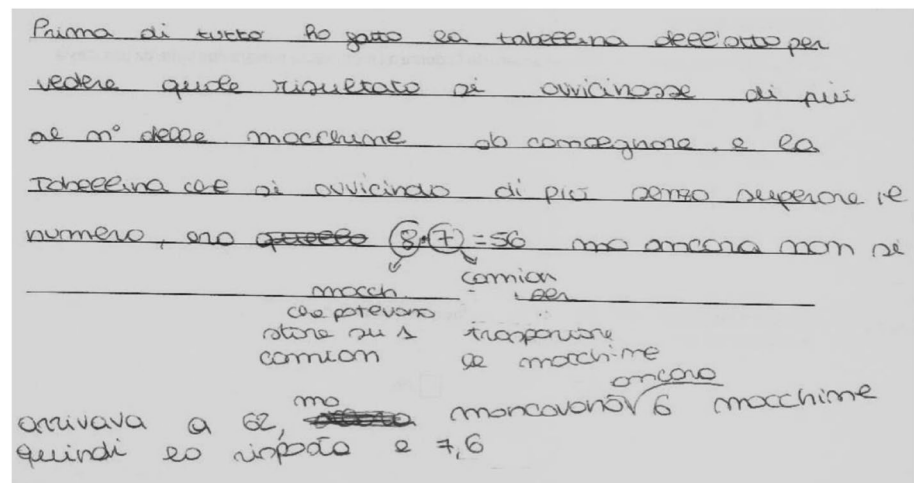 Prima di tutto ho fatto la tabellina dell'otto per
vedere quale risultato si avvicinasse di più
al n° delle macchine da consegnare, e la
Tabellina che si avvicinava di più senza superare il
numero, era quella 8•7=56 ma ancora non si
macch. camion
che potevano per
stare su 1 trasportare
camion le macchine
arrivava a 62, ma mancavano ancora 6 macchine
quindi la risposta è 7,6